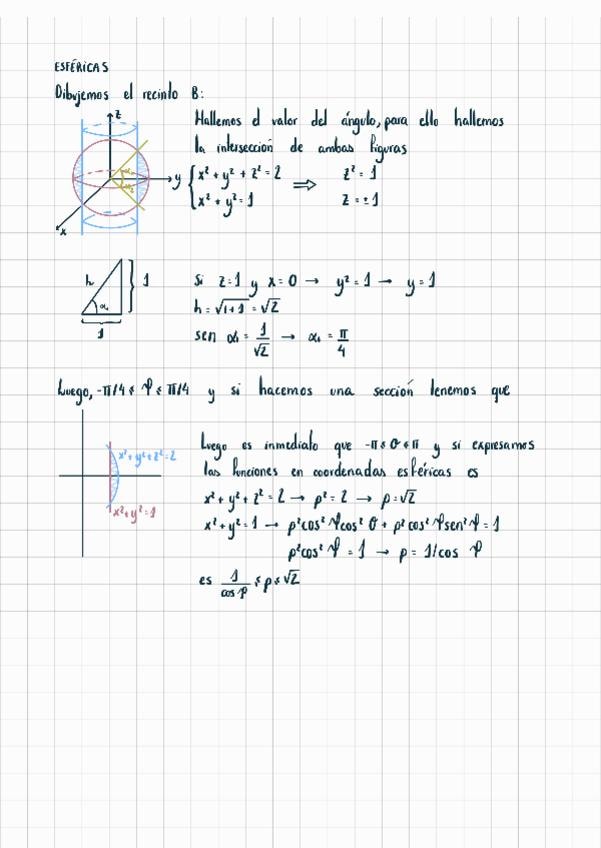 ESFÉRICAS
Dibujemos el recinto B:
z
Hallemos el valor del ángulo, para ello hallemos
la intersección de ambas figuras
y
x² + y² + z² = 2 ⟹ z² = 1
x² + y² = 1 z = ±1
x
h 1
α₁
1
Si z=1 y x=0 → y² = 1 → y=1
h = √1+1 = √2
sen α₁ = 1/√2 → α₁ = π/4
Luego, -π/4 ≤ φ ≤ π/4 y si hacemos una sección tenemos que
x²+y²+z²=2
x²+y²=1
Luego es inmediato que -π ≤ θ ≤ π y si expresamos
las funciones en coordenadas esféricas es
x² + y² + z² = 2 → ρ² = 2 → ρ = √2
x² + y² = 1 → ρ² cos² φ cos² θ + ρ² cos² φ sen² φ = 1
ρ² cos² φ = 1 → ρ = 1/cos φ
es 1/cos φ ≤ ρ ≤ √2